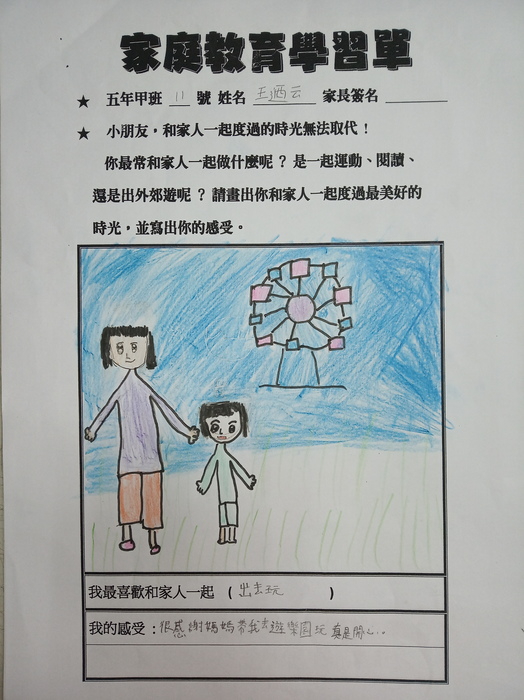 家庭教育學習單
★ 五年甲班 11 號 姓名 王迺云 家長簽名
★ 小朋友,和家人一起度過的時光無法取代!
你最常和家人一起做什麼呢?是一起運動、閱讀、
還是出外郊遊呢?請畫出你和家人一起度過最美好的
時光,並寫出你的感受。
我最喜歡和家人一起 (出去玩)
我的感受:很感謝媽媽帶我去遊樂園玩 真是開心..